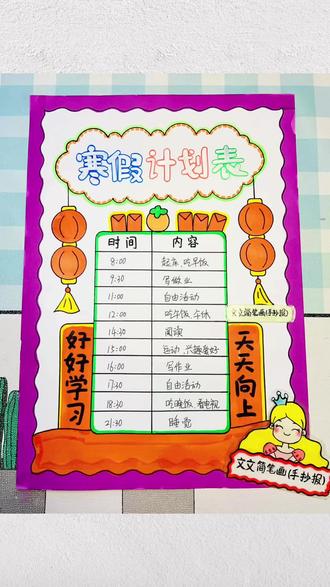 寒假计划表
时间 内容
8:00 起床 吃早饭
9:30 写做业
11:00 自由活动
12:00 吃午饭 午休
14:30 阅读
15:00 运动 兴趣爱好
16:00 写作业
17:30 自由活动
18:30 吃晚饭 看电视
21:30 睡觉
好好学习
天天向上
文文简笔画(手抄报)
文文简笔画(手抄报)